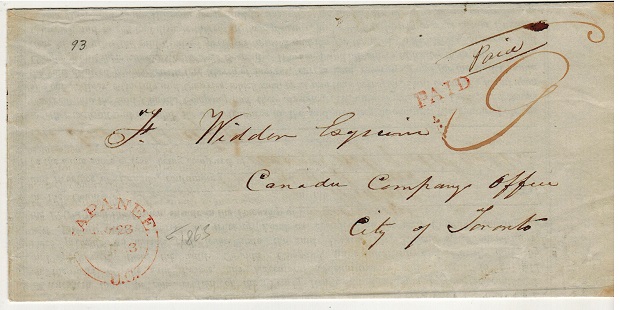 93
Paid
PAID
9
Fr. Widder Esquire
Canada Company Office
City of Toronto
APANEE
26
3
U.C.
1863